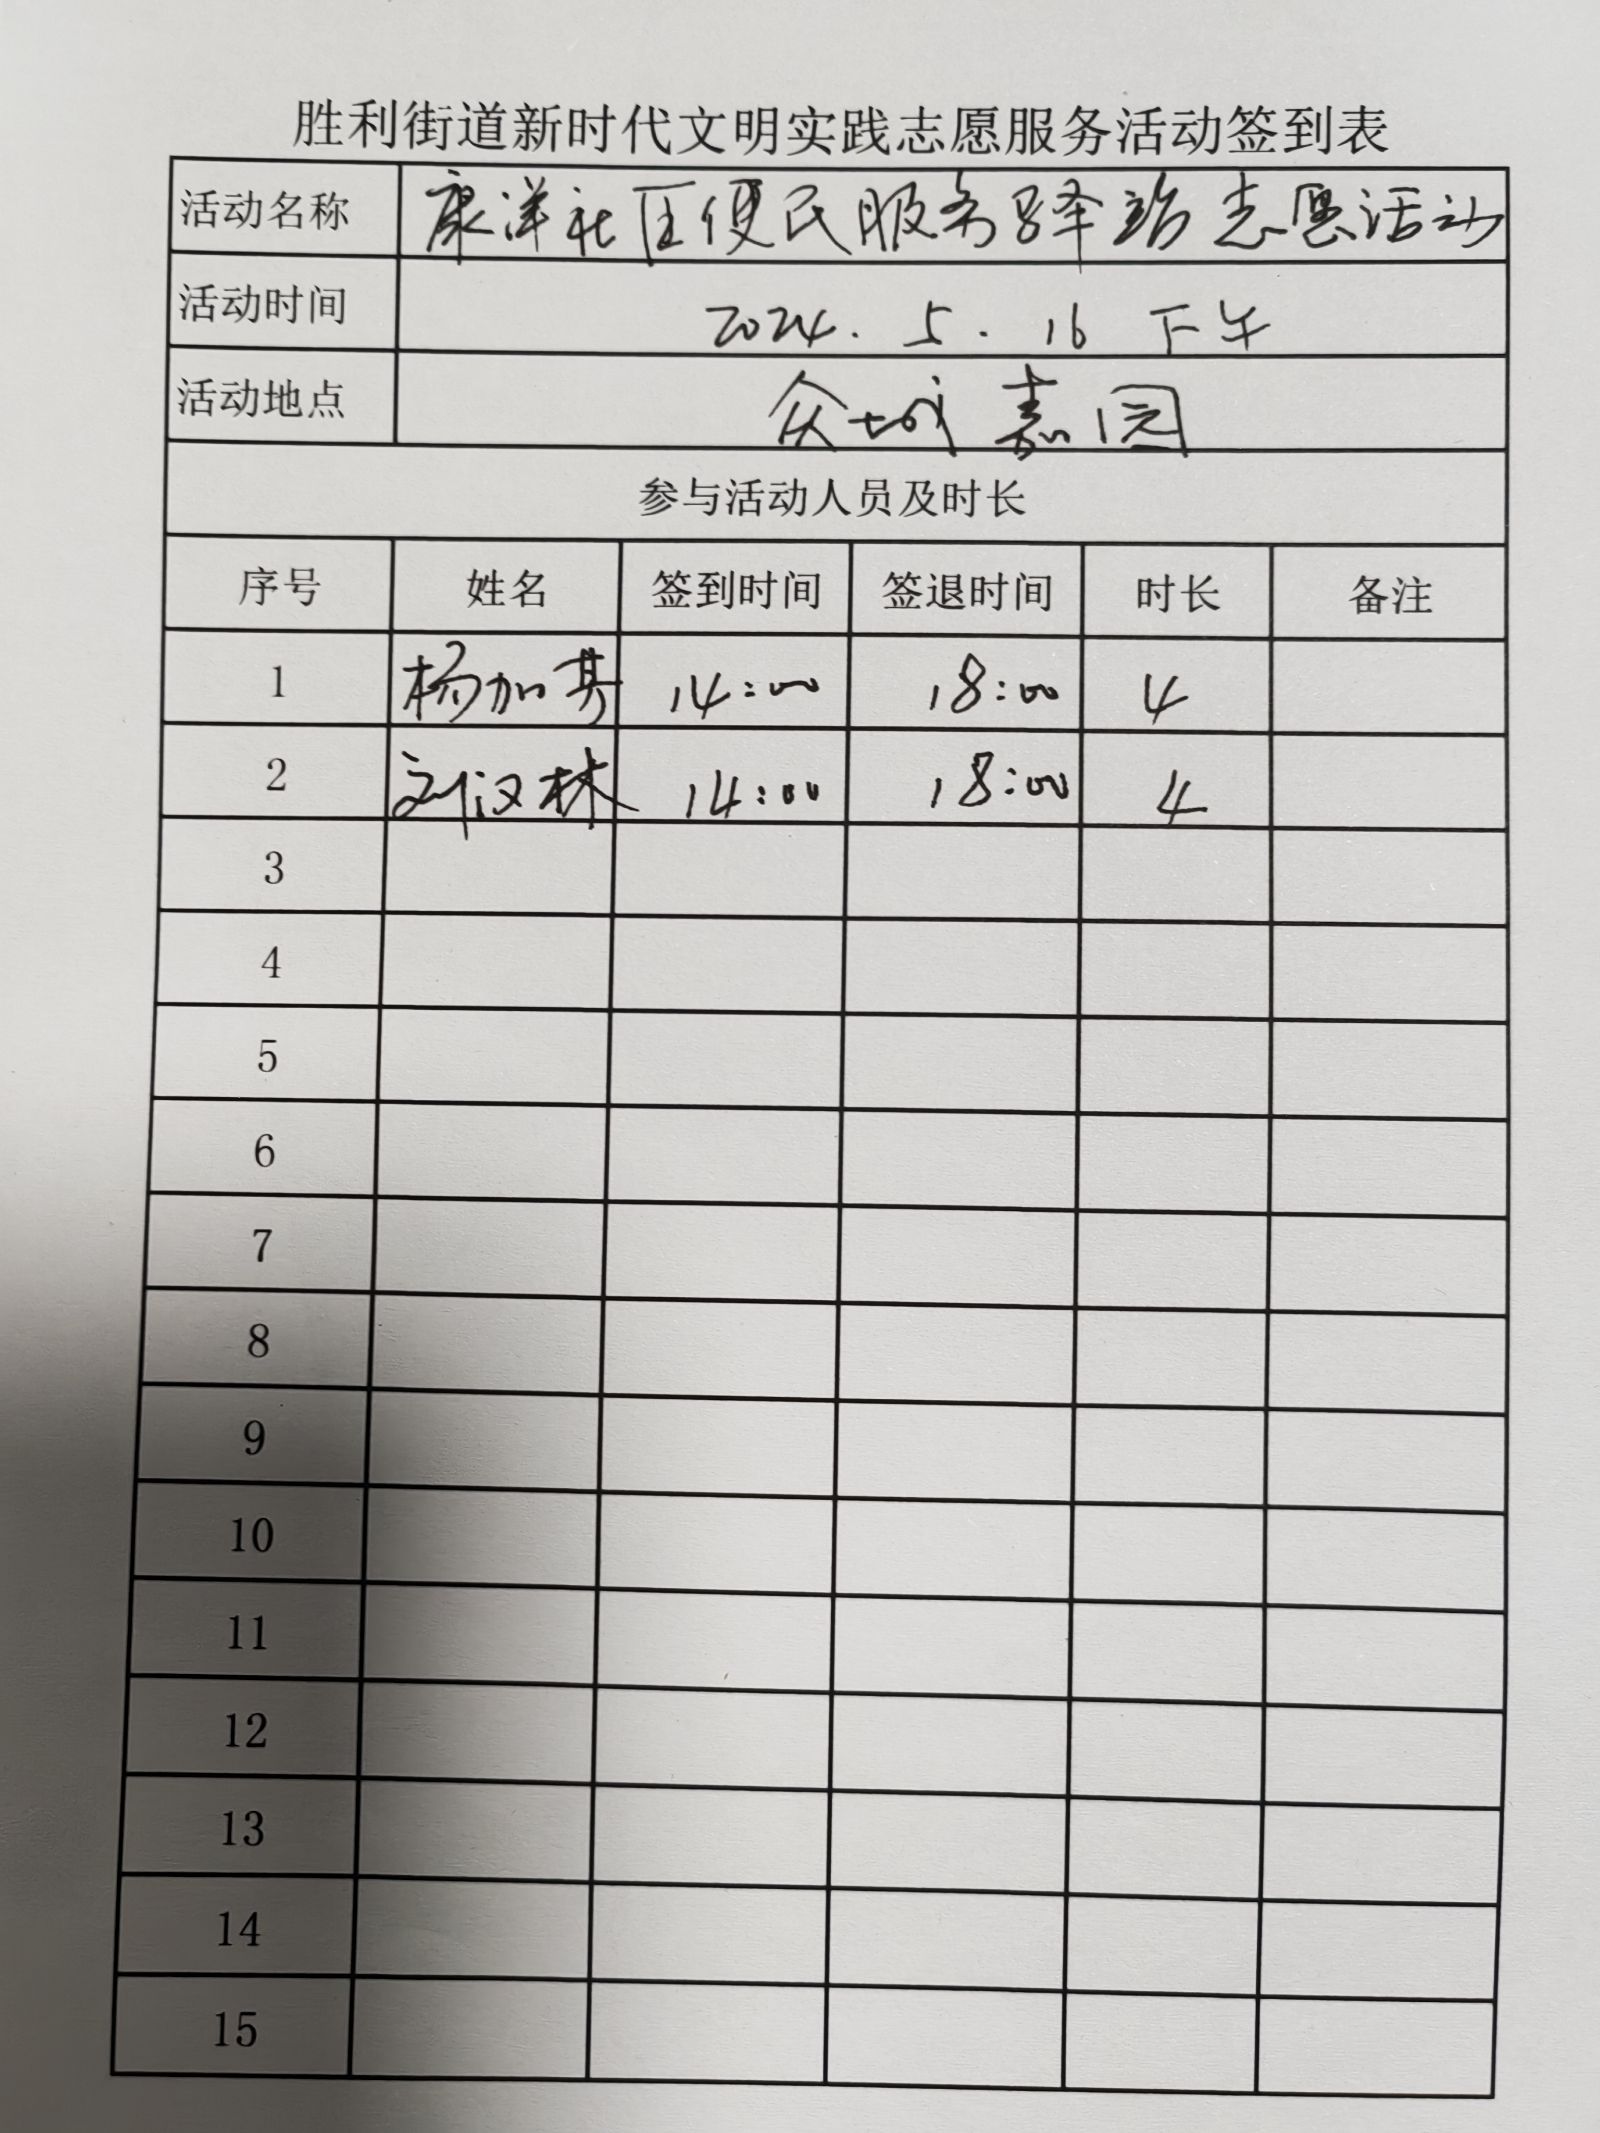 胜利街道新时代文明实践志愿服务活动签到表
活动名称 康洋社区便民服务驿站志愿活动
活动时间 2024.5.16 下午
活动地点 众城嘉园
参与活动人员及时长
序号 姓名 签到时间 签退时间 时长 备注
1 杨加其 14:00 18:00 4
2 刘汉林 14:00 18:00 4
3
4
5
6
7
8
9
10
11
12
13
14
15